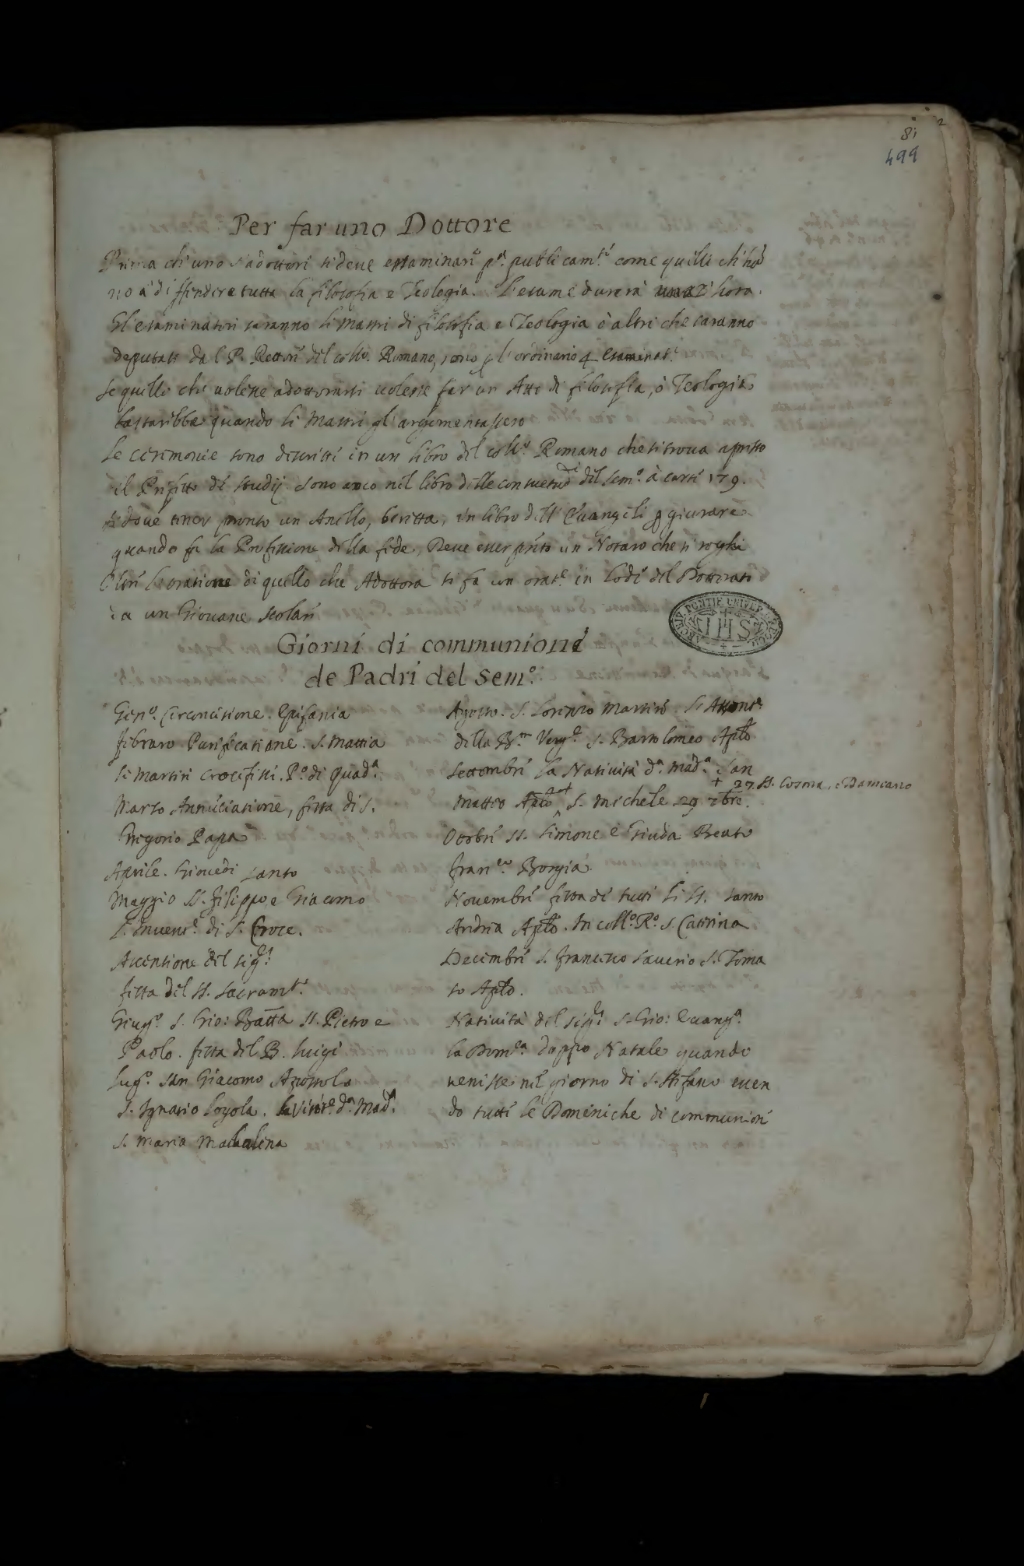 81
499
Per far uno Dottore
Prima che uno s'adottori si deve essaminare pº. publicamte. come quelli che hano
no à diffendere tutta la filosofia e Teologia. L'esame durerà una hora.
Gl'esaminatori saranno li Mastri di filosofia e Teologia ò altri che saranno
deputati dal P. Rettore del collº. Romano, sono pl'ordinario 4 esaminat.
Se quello che volesse adottorarsi volesse far un Atto di filosofia, ò Teologia
bastaribbe quando li Mastri gl'argumentassero
Le cerimonie sono descritte in un libro del collº. Romano che si trova apresso
il Prefetto di studij sono anco nel libro delle consuetud. del semº. à carte 179.
tener pronto un Anello, beretta, un libro dell'Evangeli p giurare
quando fa la Professione della fede, Deve esser presto un Notaro che si roghi
Oltre l'oratione di quello che Adottora si fa un orate. in lode del Dottorato
da un Giovane scolare
ARCHIV. PONTIF. UNIV. GREG.
IHS
Giorni di communione
de Padri del Semº.
Genº. Circoncisione. Epifania
Febraro Purificatione. S. Mattia
li Martiri Crocifissi. Pª. di Quadª.
Marzo Annūciatione, festa di S.
Gregorio Papa
Aprile. Giovedi santo
Maggio SS. Filippo e Giacomo
L'invente. di S. Croce.
Ascensione del Sigre.
festa del SS. Sacramto.
Giugº. S. Gio: Batta SS. Pietro e
Paolo. festa del B. Luigi
Lugº. San Giacomo Apostolo
S. Ignatio Loyola. la Visitº. dª. Madª.
S. Maria Madalena
Agosto. S. Lorenzo Martire. L'Assontº.
della Bta. Verge. S. Bartolomeo Aplo
Settembre la Natività dª. Madª. San
+ 27 SS. Cosma, e Damiano
Matteo Aplo + S. Michele 29 7bre.
Ottobre SS. Simone e Giuda Beato
Francco. Borgia
Novembre festa de tutti li SS. Santo
Andrea Aplo. In collº. Rº. S. Catterina
Decembre S. Francesco Saverio S. Toma
so Aplo.
Natività del Sigre. S. Gio: Evangª.
la Domca. doppo Natale quando
venisse nel giorno di S. Stefano essen
do tutte le Domeniche di communione